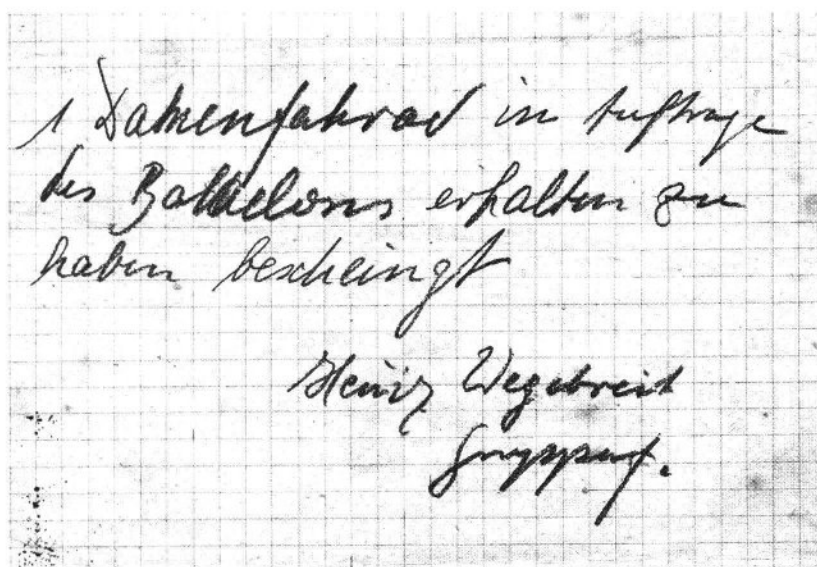 1 Damenfahrad im Auftrage
des Batallons erhalten zu
haben bescheingt
Heinz Wegebreit
Gruppenf.